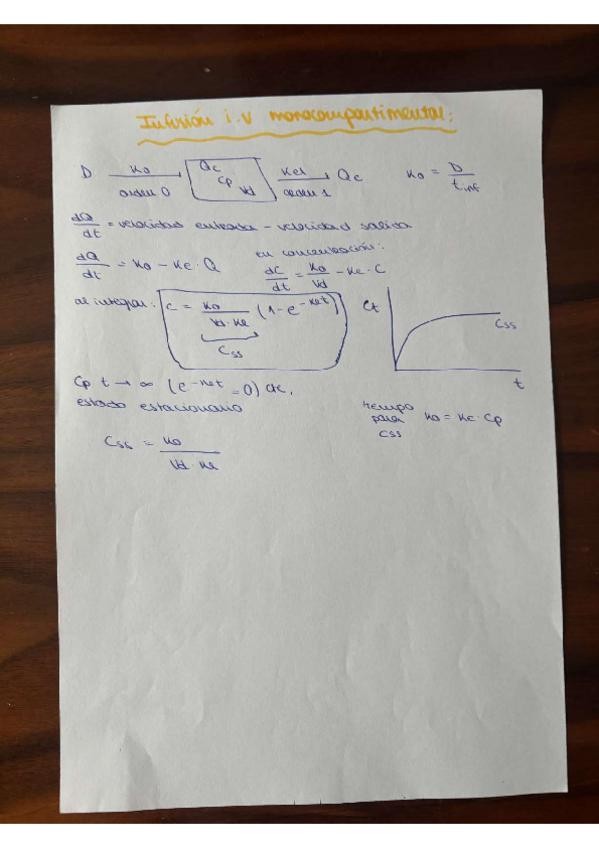 Infusión i.v monocompartimental:
D →K₀ orden 0→ Qc Cp Vd →Kel orden 1→ Qc K₀ = D / t inf
dQ/dt = velocidad entrada - velocidad salida
dQ/dt = K₀ - Ke · Q
en concentración:
dC/dt = K₀/Vd - Ke · C
al integrar: C = K₀ / Vd · Ke (1 - e^-Ke t)
Css
Ct
Css
t
Cp t → ∞ (e^-Ke t = 0)
estado estacionario
Css = K₀ / Vd · Ke
tiempo para Css K₀ = Ke · Cp